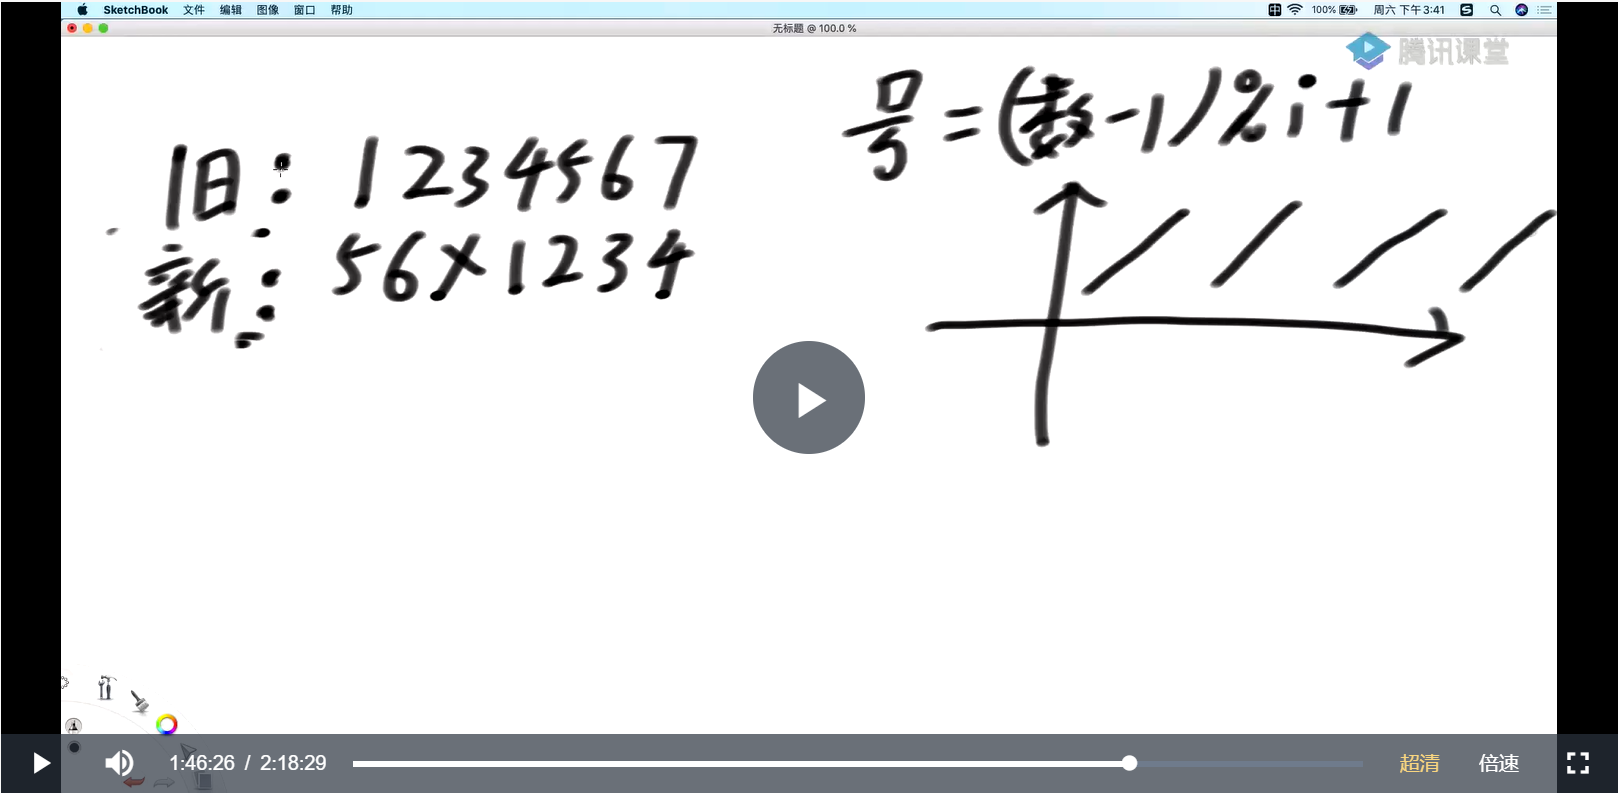 SketchBook 文件 编辑 图像 窗口 帮助 100% 周六 下午3:41
无标题 @ 100.0 %
腾讯课堂
号=(数-1)%i+1
旧: 1234567
新: 56X1234
1:46:26 / 2:18:29 超清 倍速